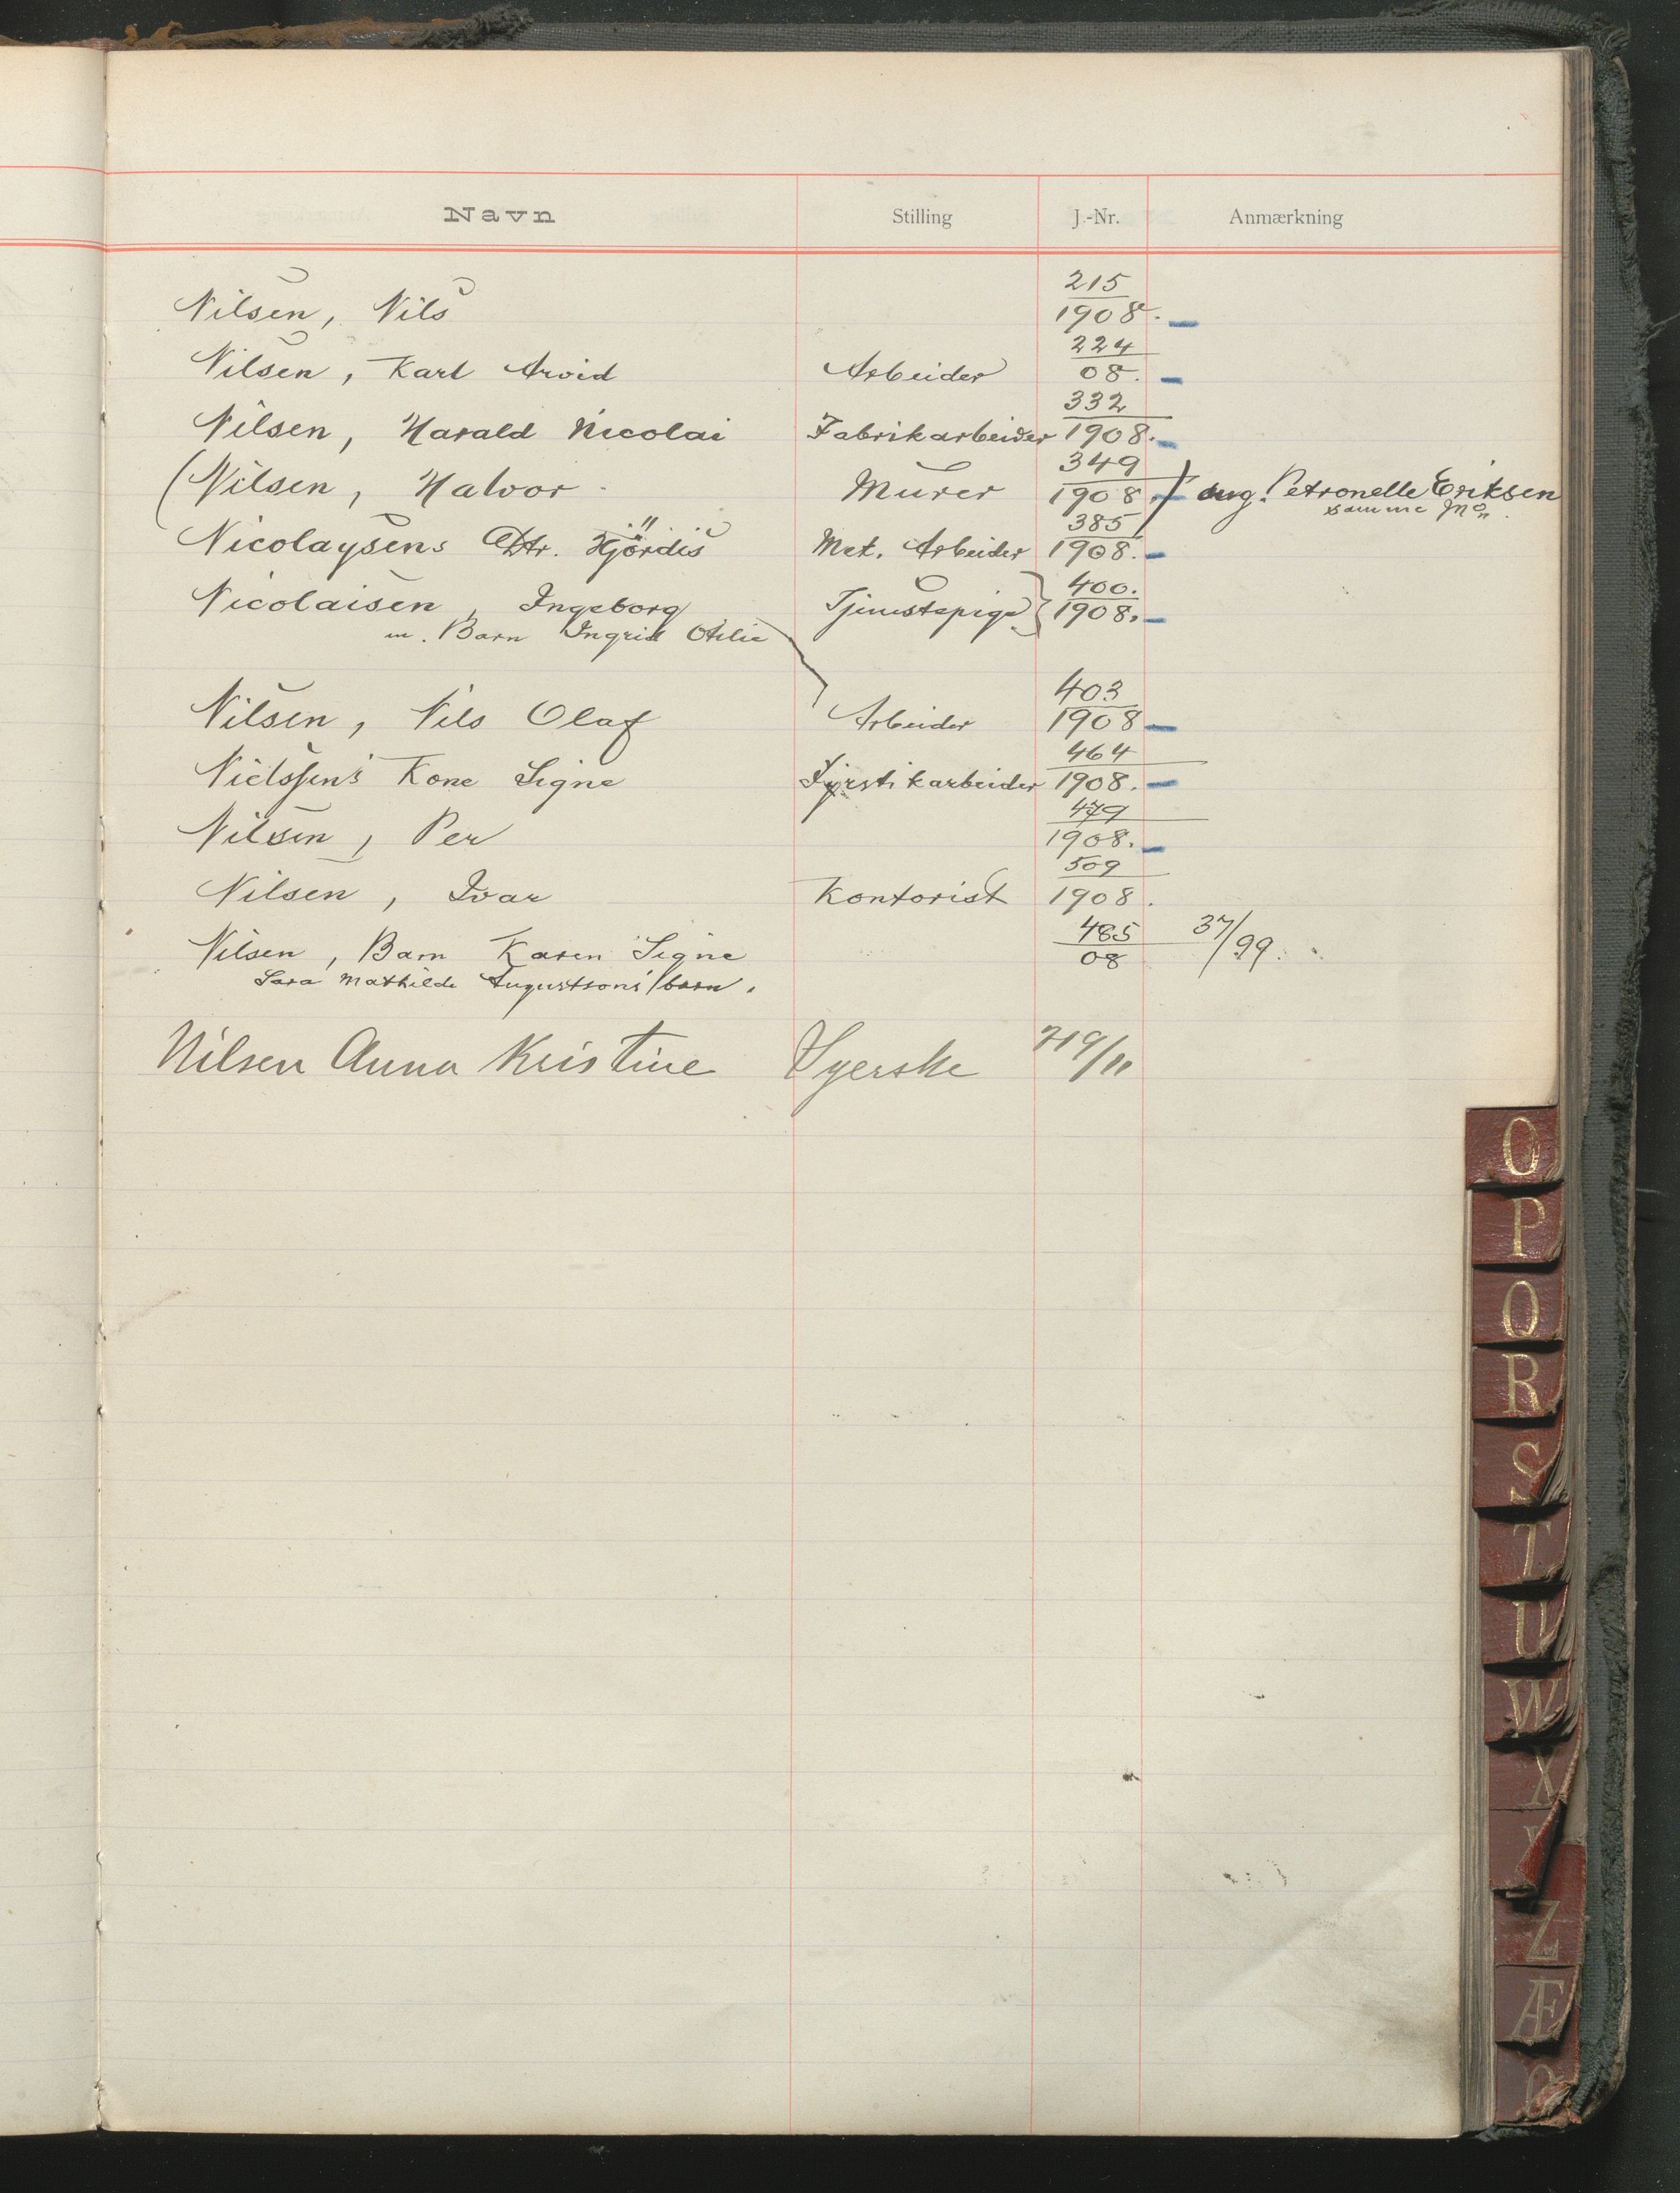 Navn Stilling J.-Nr. Anmærkning
Nilsen, Nils 215/1908.
Nilsen, Karl Arvid Arbeider 224/08.
Nilsen, Harald Nicolai Fabrikarbeider 332/1908.
(Nilsen, Halvor Murer 349/1908.) ang. Petronelle Eriksen
samme No
Nicolaysens Dtr. Hjördis Met. Arbeider 385/1908.
Nicolaisen, Ingeborg Tjenestepige 400./1908.
m. Barn Ingrid Otilie
Nilsen, Nils Olaf Arbeider 403/1908
Nielssen's Kone Signe Fyrstikarbeider 464/1908.
Nilsen, Per 479/1908.
Nilsen, Ivar Kontorist 509/1908.
Nilsen, Barn Karen Signe 485/08 37/99.
Sara Mathilde Augustsons barn.
Nilsen Anna Kristine Syerske 719/11
O
P
Q
R
S
T
U
W
X
Z
Æ